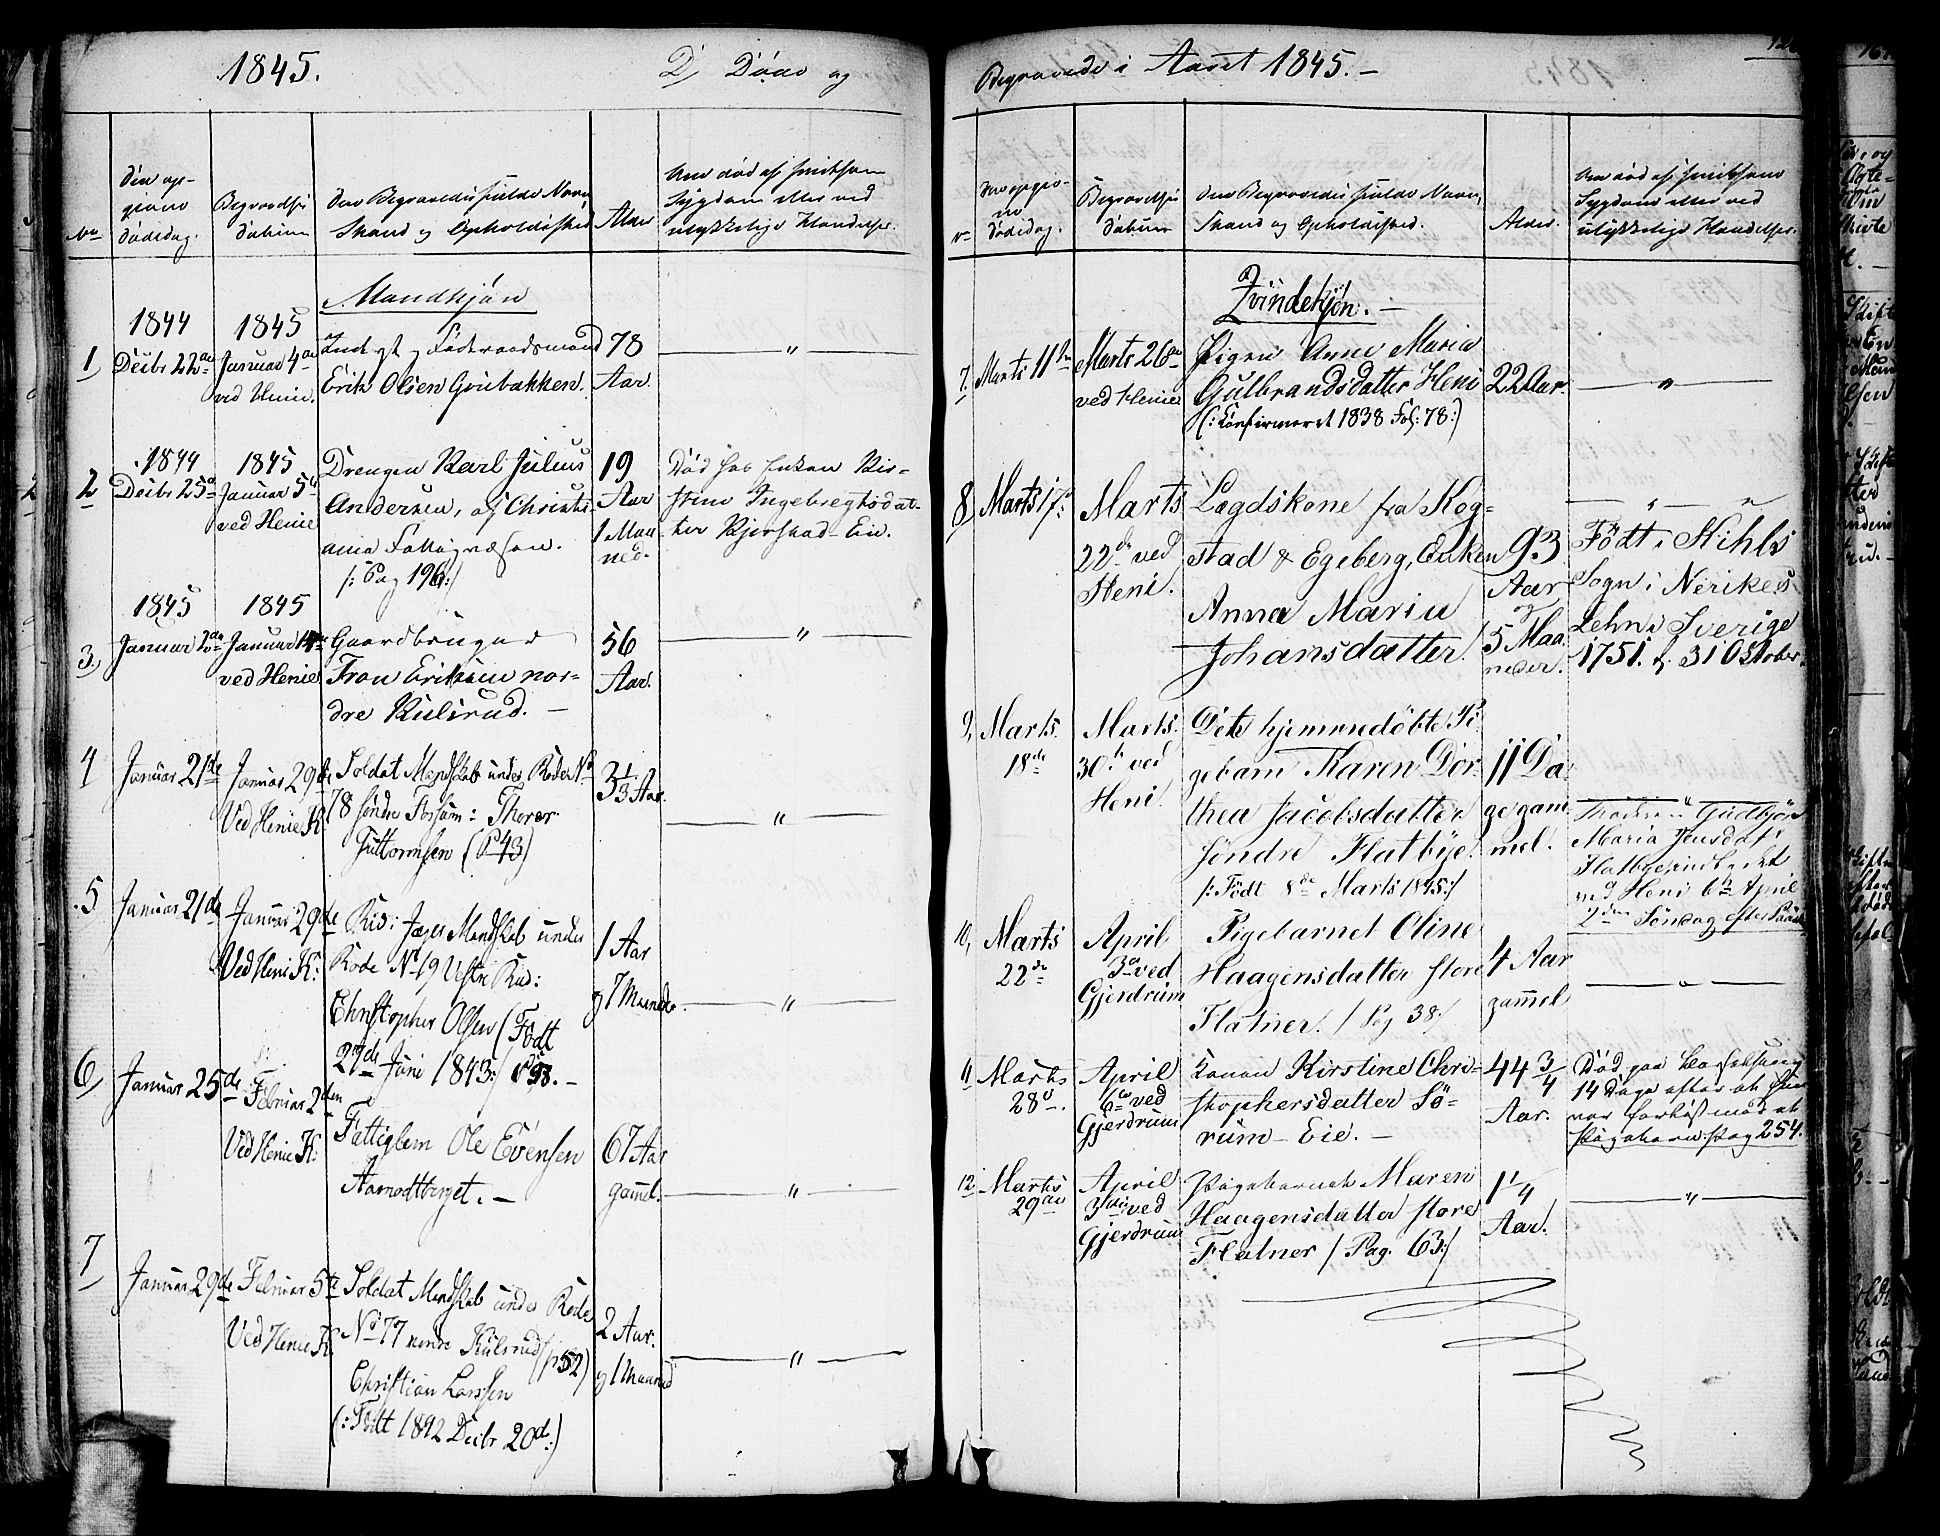 1845.
D, Døde og
No
Den op-
givne
Dødsdag.
Begravelses
Datum
Den Begravedes fulde Navn,
Stand og Opholdssted
Alder
Om død af smitsom
Sygdom eller ved
ulykkelig Hændelse.
Mandkjøn
1,
1844
Decbr 22de
1845
Januar 4de
ved Henie.
Indsgt og Føderaadsmand
Erik Olsen Grubakken.
78
Aar.
— " —
2
1844
Decbr 25de
1845
Januar 5te
ved Henie
Drengen Karl Julius
Andersen, af Christi-
ania
/: Pag 196:/
19
Aar
1 Maa-
ned.
Død hos Enken Kir-
stine Ingebregtsdat-
ter Kjerstad-Eie.
3,
1845
Januar
1845
Januar
ved Henie
Gaardbruger
Tron Eriksen nor-
dre Kulsrud. —
56
Aar.
— " —
4
Januar 21de
Januar 29de
Ved Henie K:
Soldat Mandskab under Rode No
78 søndre Fossum: Thorer
Guttormsen (P 43)
3 1/3 Aar.
— " —
5
Januar 21de
Januar 29de
Ved Heni K:
Rid: Jæger Mandskab under
Rode No 19 Vestre Rud:
Christopher Olsen (Født
27de Juni 1843:/
1 Aar
og 7 Maaneder
— " —
6,
Januar 25de
Februar 2den
Ved Henie K:
Fattiglem Ole Evensen
Aamodtberget. —
67 Aar
gamel.
— " —
7
Januar 29de
Februar 5te
Ved Henie K.
Soldat Mandskab under Rode
No 77 nordre Kulsrud (p 52)
Christian Larssen
(: Født 1842 Decbr 20de:)
2 Aar.
og 1 Maaned
— " —
Begravede i Aaret 1845. —
No
Den opgiv-
ne
Dødsdag.
Begravelses
Datum
Den Begravedes fulde Navn,
Stand og Opholdssted.
Alder.
Om død af smitsom
Sygdom eller ved
ulykkelig Hændelse.
Qvindekjøn. —
7.
Marts 11te
Marts 26de
ved Henie
Pigen Anne Maria
Gulbrandsdatter Heni
(: Konfirmeret 1838 Fol: 78:)
22 Aar.
— " —
8,
Marts 17de
Marts
22de ved
Heni.
Lægdskone fra Kog-
stad & Egeberg, Enken
Anna Maria
Johansdatter.
93
Aar
og
5 Maa-
neder.
— " — "
Født i Kihls
Sogn i Nerikes
Lehn i Sverige
1751. d. 31 Oktober.
9,
Marts.
18de
Marts.
30te ved
Heni.
Dete hjemmedøbte Pi-
gebarn Karen Dor-
thea Jacobsdatter
søndre Flatbye.
/: Født 8de Marts 1845:/
11 Da-
ge gam-
mel.
Moderen Gudbjør
Maria Jensdatr
Flatbye indledet
ved Heni 6te April
2den Søndag efter Paaske
10,
Marts
22de
April
3de ved
Gjerdrum
Pigebarnet Oline
Haagensdatter store
Flatner. / Pag 38:/
4 Aar
gammel
— " —
11
Marts
28de.
April
6te ved
Gjerdrum
Konen Kirstine Chri-
stophersdatter Sö-
rum-Eie. —
44 3/4
Aar.
Død paa Barselseng
14 Dage efter at hun
var forløst med et
Pigebarn. Pag 254.
12
Marts
29de
April
3die ved
Gjerdrum
Pigebarnet Maren
Haagensdatter store
Flatner / Pag. 63:/
1 1/4
Aar.
— " —